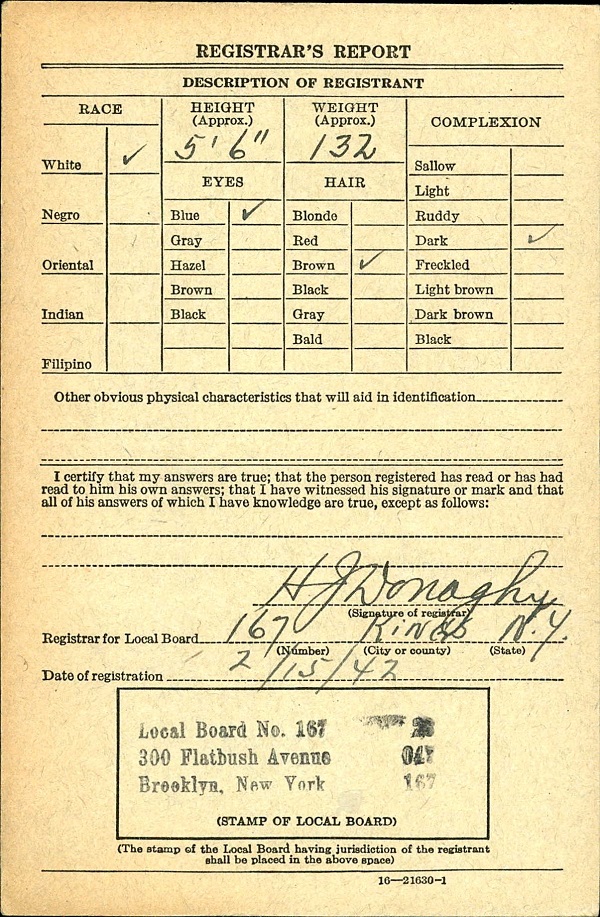 REGISTRAR'S REPORT
DESCRIPTION OF REGISTRANT
RACE
HEIGHT
(Approx.)
WEIGHT
(Approx.)
COMPLEXION
5' 6"
132
White ✓
Sallow
EYES
HAIR
Light
Negro
Blue ✓
Blonde
Ruddy
Gray
Red
Dark ✓
Oriental
Hazel
Brown ✓
Freckled
Brown
Black
Light brown
Indian
Black
Gray
Dark brown
Bald
Black
Filipino
Other obvious physical characteristics that will aid in identification
I certify that my answers are true; that the person registered has read or has had
read to him his own answers; that I have witnessed his signature or mark and that
all of his answers of which I have knowledge are true, except as follows:
H J Donaghy
(Signature of registrar)
Registrar for Local Board 167 Kings N.Y.
(Number) (City or county) (State)
Date of registration 2/15/42
Local Board No. 167
300 Flatbush Avenue 047
Brooklyn, New York 167
(STAMP OF LOCAL BOARD)
(The stamp of the Local Board having jurisdiction of the registrant
shall be placed in the above space)
16—21630-1